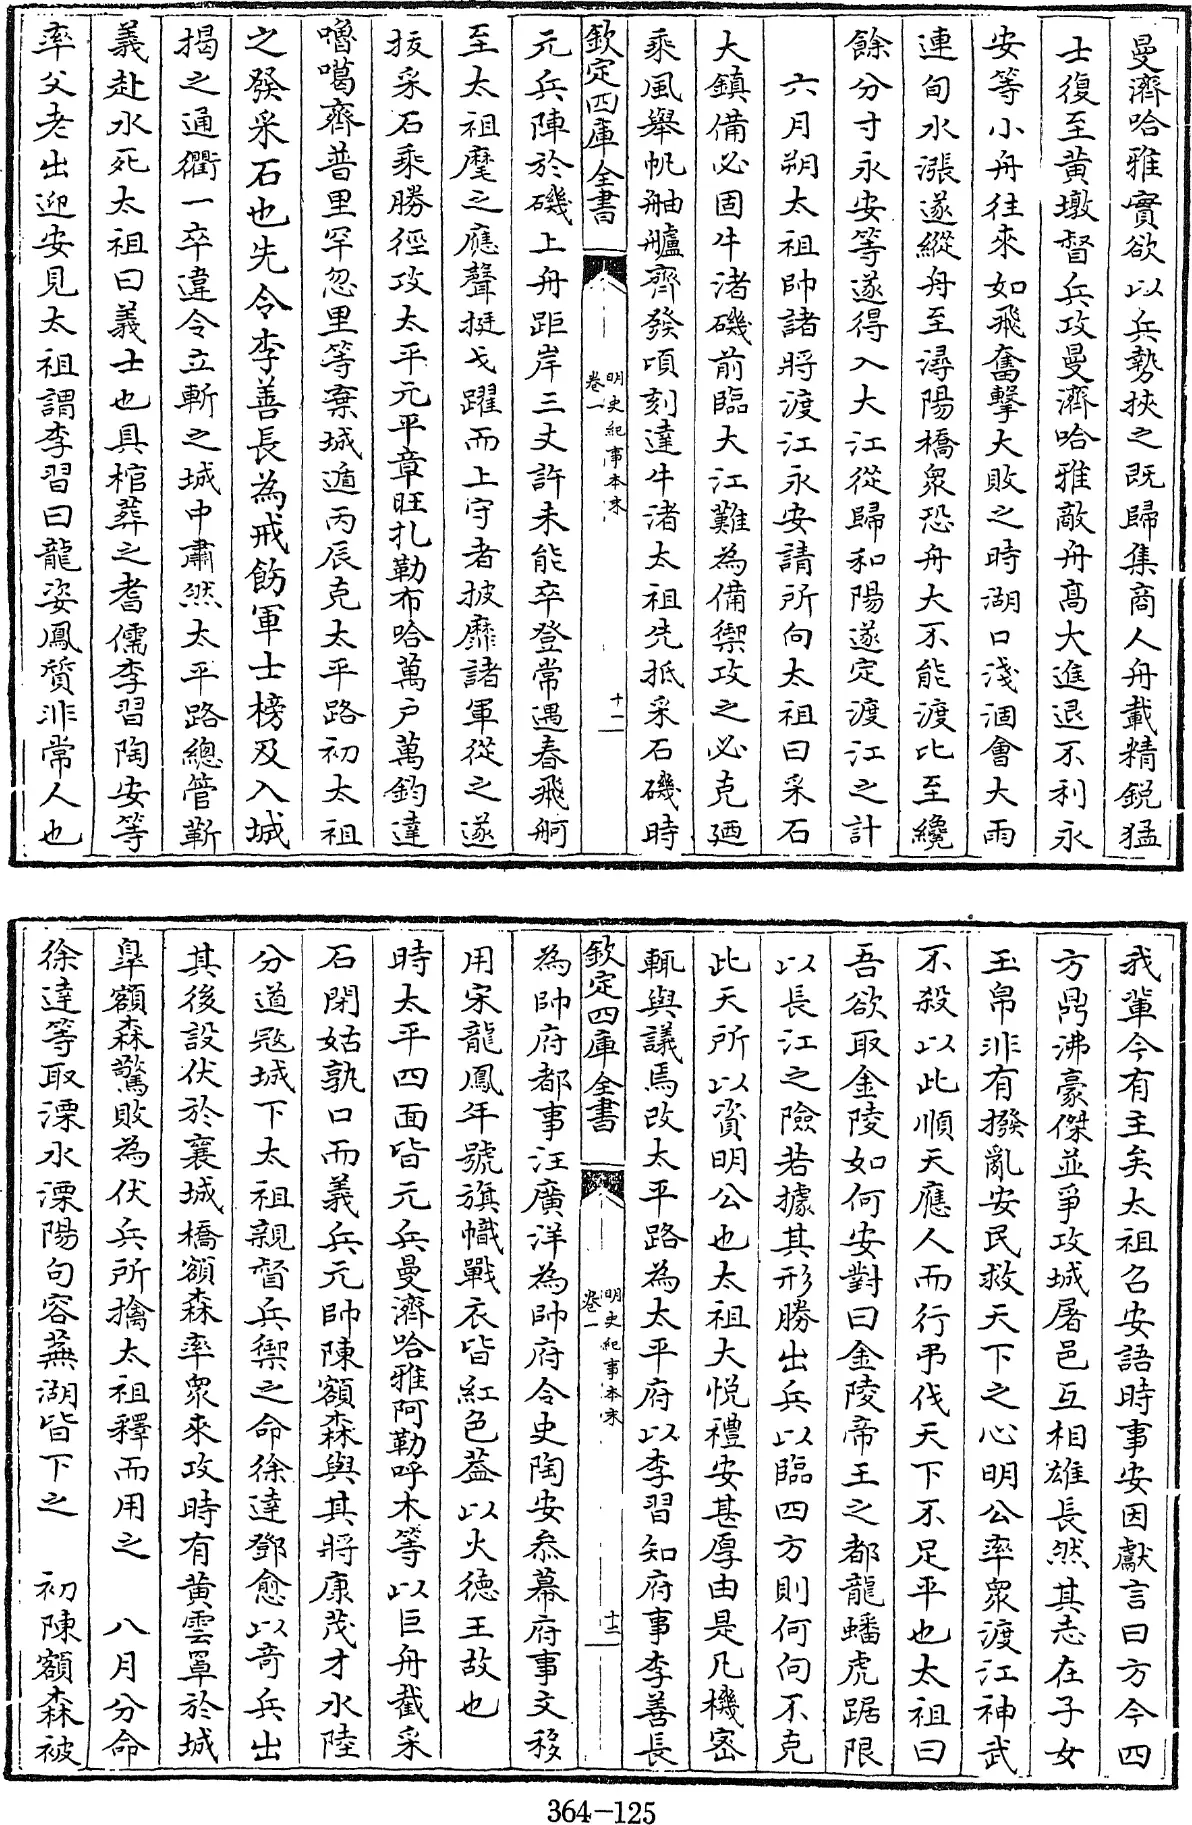 曼濟哈雅實欲以兵勢挾之既歸集商人舟載精鋭猛
士復至黄墩督兵攻曼濟哈雅敵舟髙大進退不利永
安等小舟往來如飛奮擊大敗之時湖口淺涸會大雨
連旬水漲遂縱舟至潯陽橋衆恐舟大不能渡比至纔
餘分寸永安等遂得入大江從歸和陽遂定渡江之計
六月朔太祖帥諸將渡江永安請所向太祖曰采石
大鎮備必固牛渚磯前臨大江難為備禦攻之必克廼
乘風舉帆舳艫齊發頃刻達牛渚太祖先抵采石磯時
欽定四庫全書
明史紀事本末
卷一
十一
元兵陣於磯上舟距岸三丈許未能卒登常遇春飛舸
至太祖麾之應聲挺戈躍而上守者披靡諸軍從之遂
抜采石乘勝徑攻太平元平章旺扎勒布哈萬户萬鈞達
嚕噶齊普里罕忽里等棄城遁丙辰克太平路初太祖
之發采石也先令李善長為戒飭軍士榜及入城
揭之通衢一卒違令立斬之城中肅然太平路總管靳
義赴水死太祖曰義士也具棺葬之耆儒李習陶安等
率父老出迎安見太祖謂李習曰龍姿鳳質非常人也
我輩今有主矣太祖召安語時事安因獻言曰方今四
方鼎沸豪傑並爭攻城屠邑互相雄長然其志在子女
玉帛非有撥亂安民救天下之心明公率衆渡江神武
不殺以此順天應人而行弔伐天下不足平也太祖曰
吾欲取金陵如何安對曰金陵帝王之都龍蟠虎踞限
以長江之險若據其形勝出兵以臨四方則何向不克
此天所以資明公也太祖大悦禮安甚厚由是凡機密
輒與議焉改太平路為太平府以李習知府事李善長
欽定四庫全書
明史紀事本末
卷一
十二
為帥府都事汪廣洋為帥府令史陶安叅幕府事文移
用宋龍鳳年號旗幟戰衣皆紅色葢以火徳王故也
時太平四面皆元兵曼濟哈雅阿勒呼木等以巨舟截采
石閉姑孰口而義兵元帥陳額森與其將康茂才水陸
分道宼城下太祖親督兵禦之命徐達鄧愈以竒兵出
其後設伏於襄城橋額森率衆來攻時有黄雲罩於城
臯額森驚敗為伏兵所擒太祖釋而用之　八月分命
徐達等取溧水溧陽句容蕪湖皆下之　初陳額森被
364-125